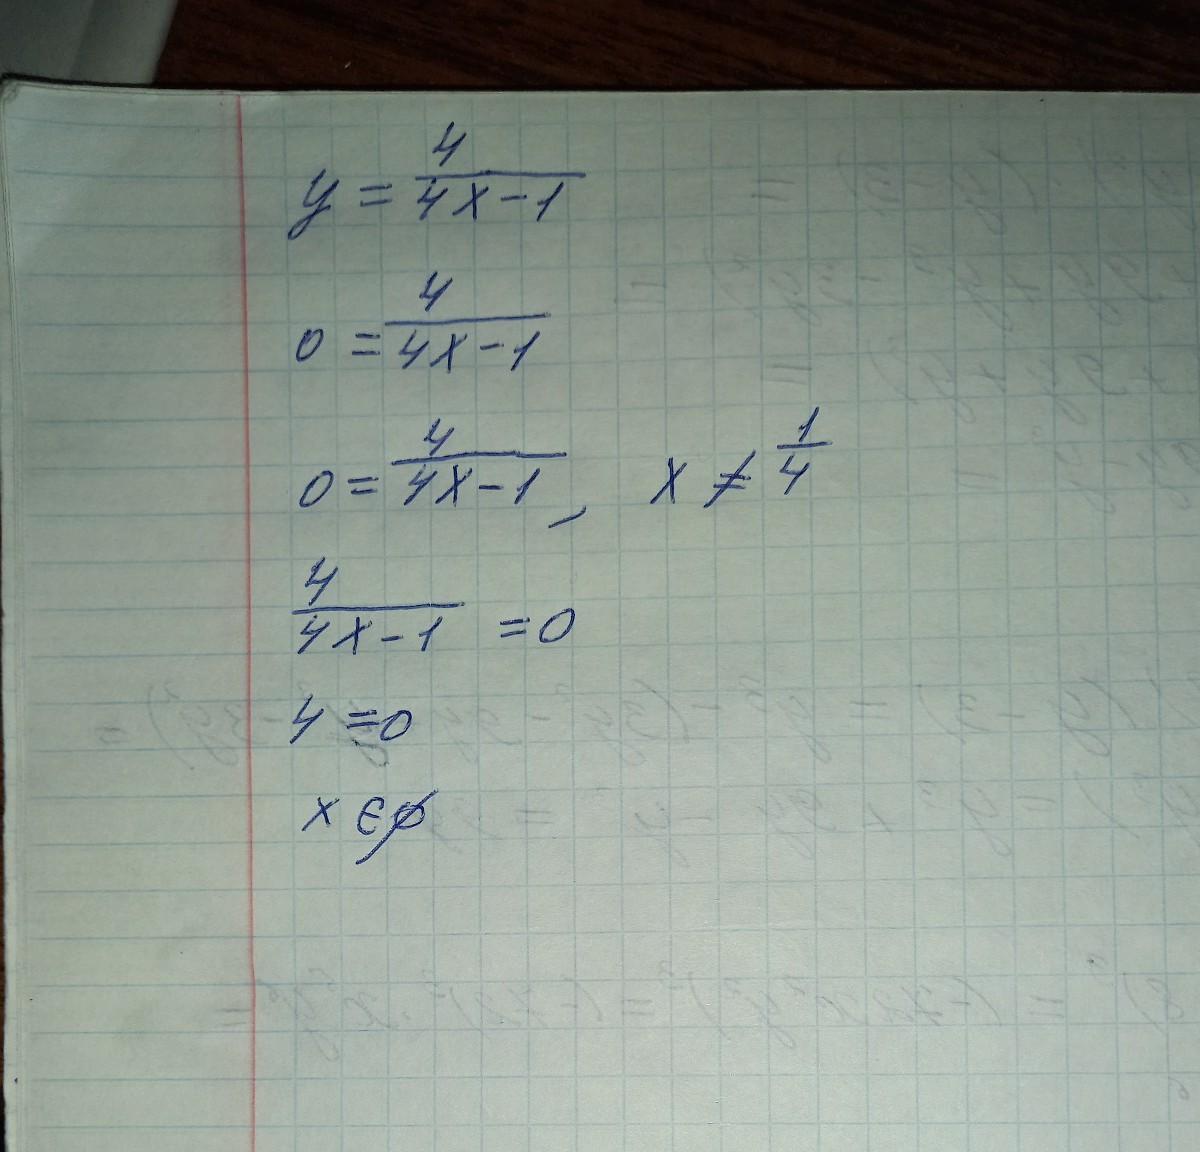 y = 4/(4x-1)
0 = 4/(4x-1)
0 = 4/(4x-1), x ≠ 1/4
4/(4x-1) = 0
4 = 0
x ∈ ∅